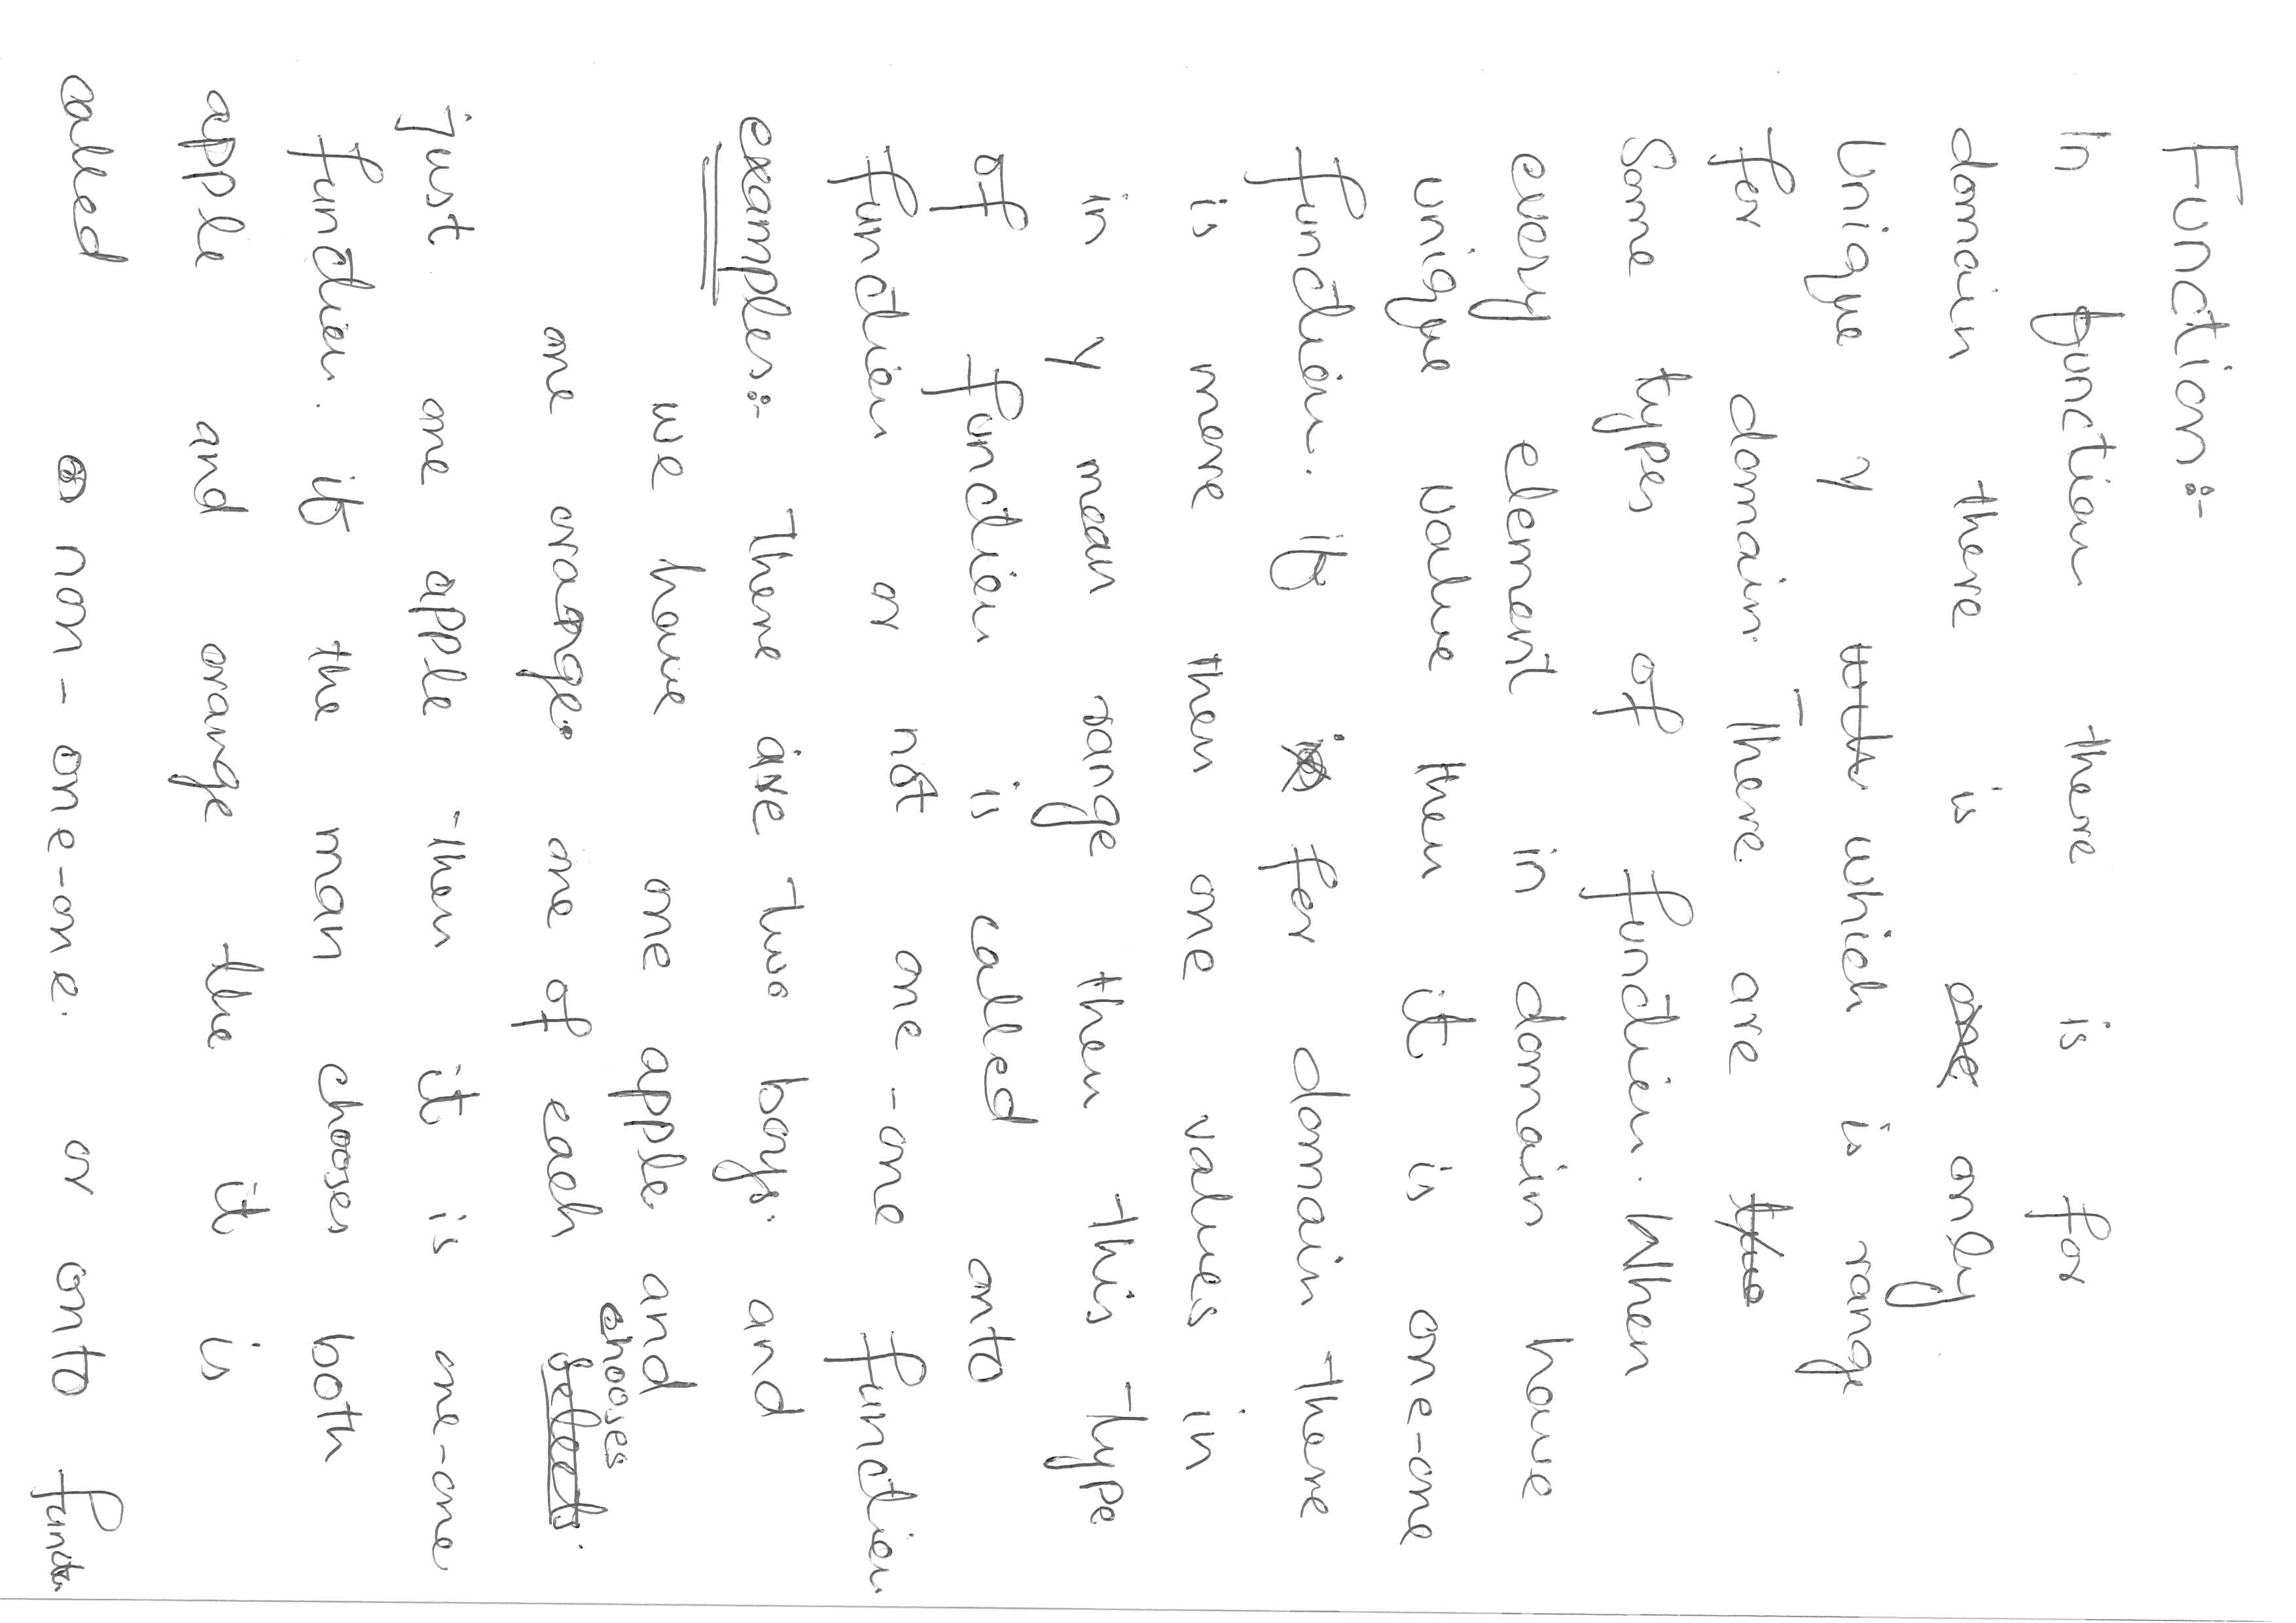 Function:-
In function there is for
domain there is only
Unique y which is range
for domain. There are
Some types of function. When
every element in domain have
unique value then it is one-one
function. if for domain there
is more then one values in
in y mean range then this type
of function is called onto
function or not one-one function
examples:- There are two boys. and
we have one apple and
chooses
one orange. one of each selects.
just one apple then it is one-one
function. if the man chooses both
apple and orange the it is
called non-one-one. or onto functn